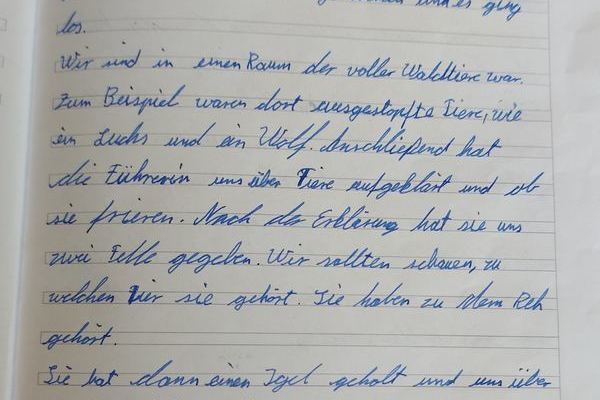 und es ging
los.
Wir sind in einen Raum der voller Waldtiere war.
Zum Beispiel waren dort ausgestopfte Tiere, wie
ein Luchs und ein Wolf. Anschließend hat
die Führerin uns über Tiere aufgeklärt und ob
sie frieren. Nach der Erklärung hat sie uns
zwei Felle gegeben. Wir sollten schauen, zu
welchen Tier sie gehört. Sie haben zu dem Reh
gehört.
Sie hat dann einen Igel geholt und uns über